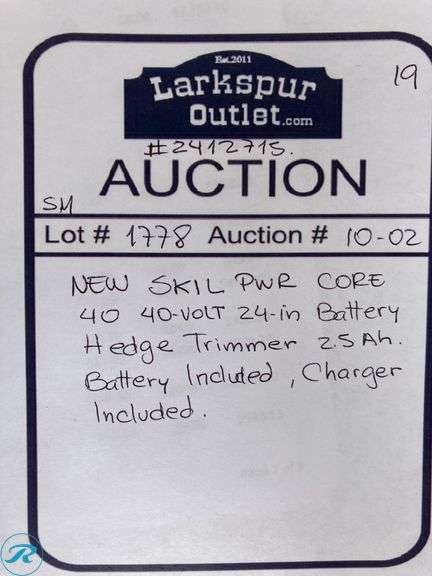 19
Est. 2011
Larkspur
Outlet.com
#2412715.
AUCTION
SM
Lot # 1778 Auction # 10-02
NEW SKIL PWR CORE
40 40-VOLT 24-in Battery
Hedge Trimmer 2.5 Ah.
Battery Included, Charger
Included.
R